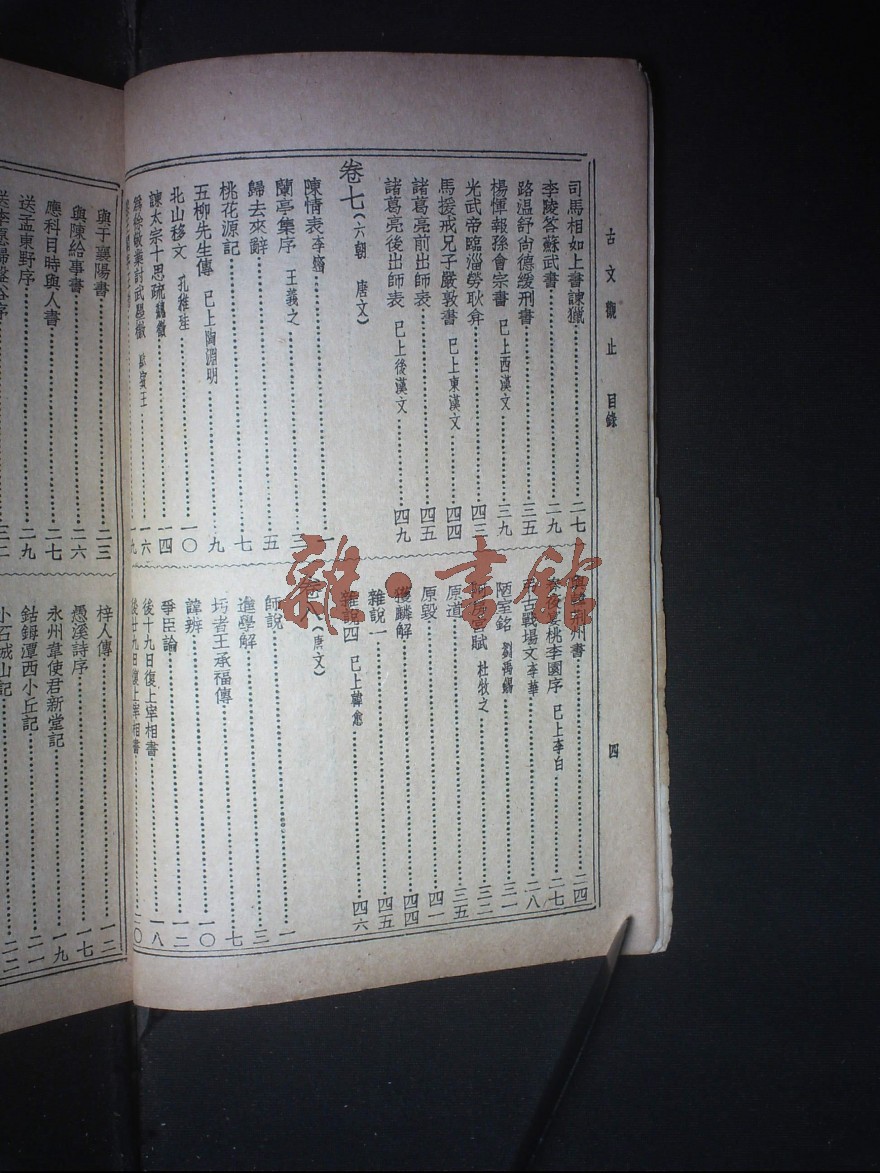 古文觀止 目錄 四
司馬相如上書諫獵 二七
李陵答蘇武書 二九
路溫舒尚德緩刑書 三五
楊惲報孫會宗書 已上西漢文 三九
光武帝臨淄勞耿弇 四三
馬援戒兄子嚴敦書 已上東漢文 四四
諸葛亮前出師表 四五
諸葛亮後出師表 已上後漢文 四九
卷七(六朝 唐文)
陳情表 李密 一
蘭亭集序 王羲之 三
歸去來辭 五
桃花源記 七
五柳先生傳 已上陶淵明 九
北山移文 孔稚珪 一〇
諫太宗十思疏 魏徵 一四
徐敬業討武曌檄 駱賓王 一六
一九
荊州書 二四
桃李園序 已上李白 二七
古戰場文 李華 二八
陋室銘 劉禹錫 三一
宮賦 杜牧之 三二
原道 三五
原毀 四一
獲麟解 四四
雜說一 四五
雜說四 已上韓愈 四六
卷八(唐文)
師說 一
進學解 三
圬者王承福傳 七
諱辨 一〇
爭臣論 一二
後十九日復上宰相書 一八
後廿九日復上宰相書 二〇
與于襄陽書 二三
與陳給事書 二六
應科目時與人書 二七
送孟東野序 二九
送李愿歸盤谷序
梓人傳 一二
愚溪詩序 一七
永州韋使君新堂記 一九
鈷鉧潭西小丘記 二一
小石城山記
雜·書館